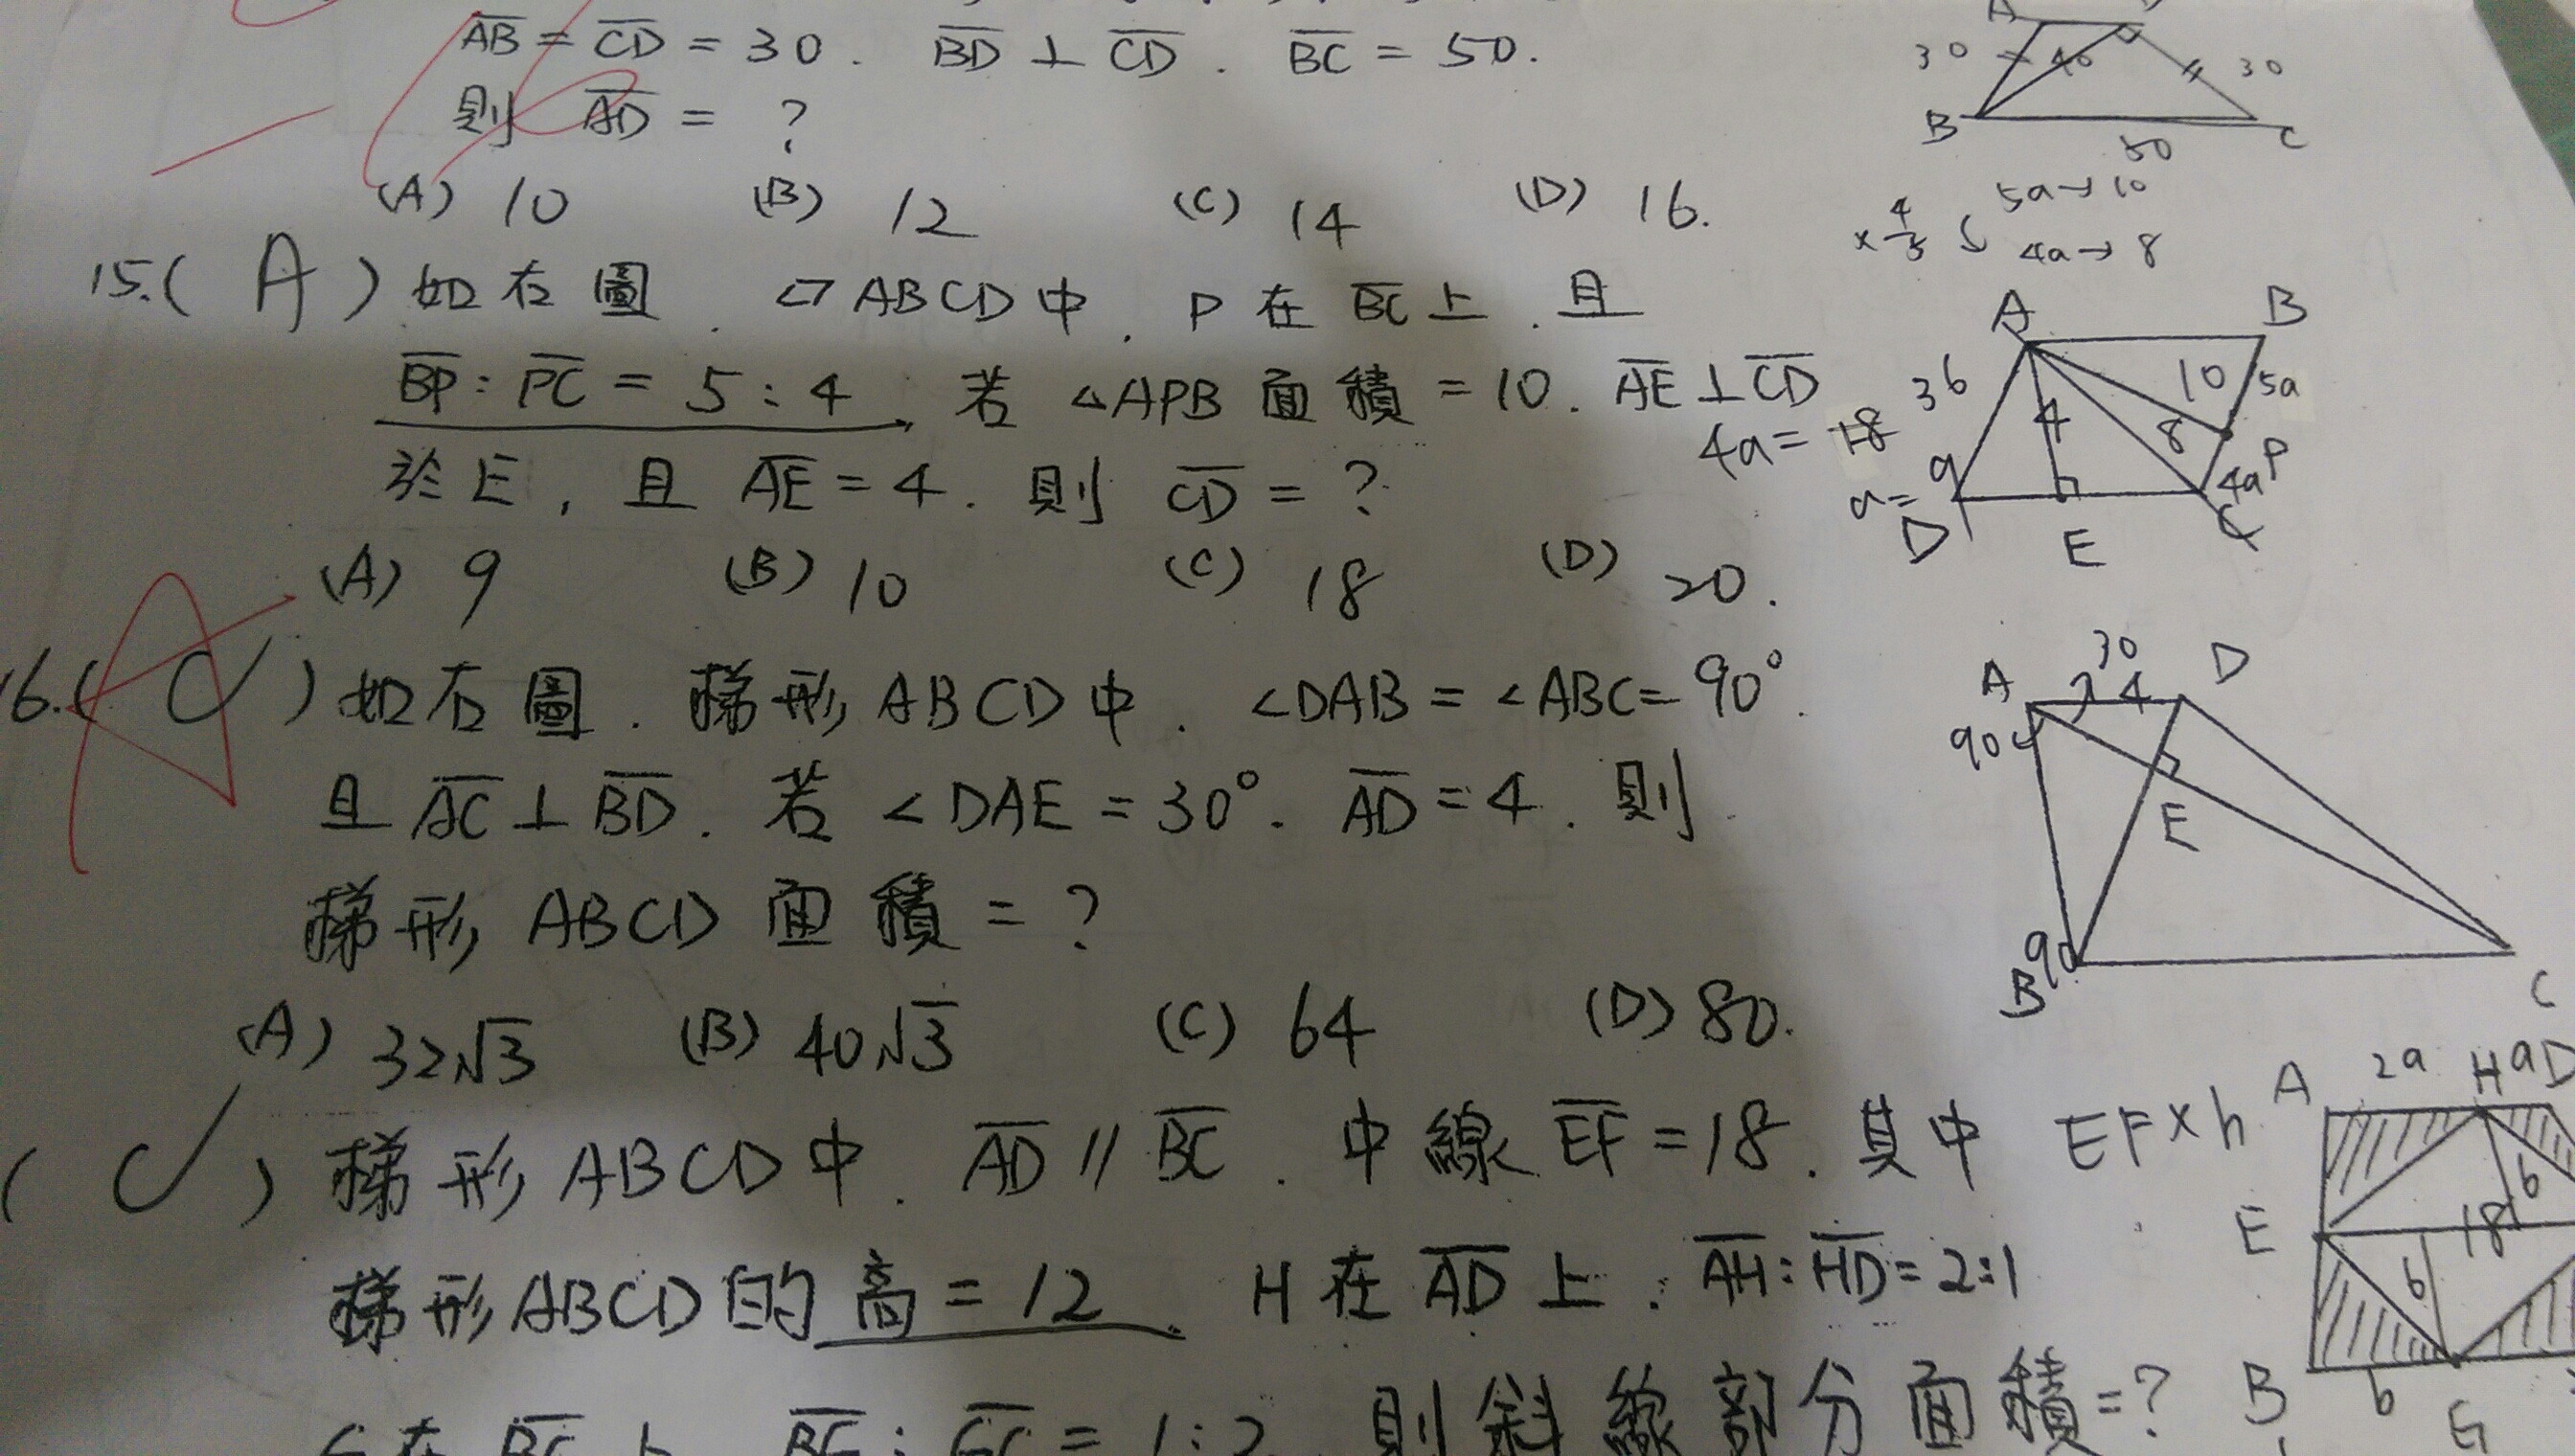 AB = CD = 30. BD ⊥ CD. BC = 50.
則 AD = ?
(A) 10 (B) 12 (C) 14 (D) 16.
A
30 40 30
B 50 C
5a→10
×4/5
4a→8
15.( A ) 如右圖. ▱ABCD中. P在BC上.且
BP : PC = 5 : 4. 若 △APB 面積 = 10. AE⊥CD
於E, 且 AE = 4. 則 CD = ?
(A) 9 (B) 10 (C) 18 (D) 20.
A B
36 10 5a
4a = 18 4 8 P
a = 9 4a
D E C
16.( C ) 如右圖. 梯形ABCD中. ∠DAB = ∠ABC = 90°.
且 AC⊥BD. 若 ∠DAE = 30°. AD = 4. 則
梯形 ABCD 面積 = ?
(A) 32√3 (B) 40√3 (C) 64 (D) 80.
A
30
A 4 D
90
E
90
B C
( C ) 梯形ABCD中. AD // BC. 中線 EF = 18. 其中
梯形ABCD的高 = 12. H在AD上. AH : HD = 2:1
G在BC上. BG : GC = 1:2. 則斜線部分面積 = ?
EF×h
A 2a H a D
6
E 18
6
B b G